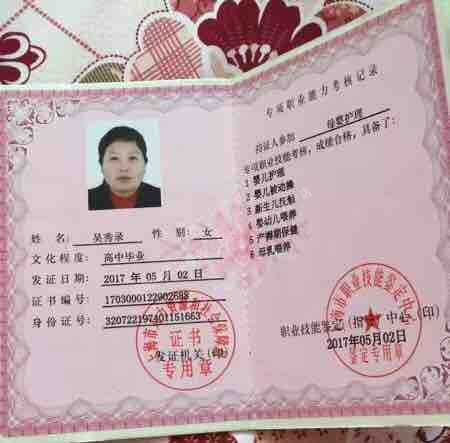 姓 名： 吴秀录 性 别： 女
文化程度： 高中毕业
发证日期： 2017 年 05 月 02 日
证书编号： 1703000122902688
身份证号： 320722197401151663
证书
发证机关（印
专用章
专项职业能力考核记录
持证人参加 母婴护理
专项职业技能考核，成绩合格，具备了：
1 婴儿护理
2 婴儿被动操
3 新生儿抚触
4 婴幼儿喂养
5 产褥期保健
6 母乳喂养
海市职业技能鉴定中心
职业技能鉴定（指 中心（印）
2017年05月02日
鉴定专用章